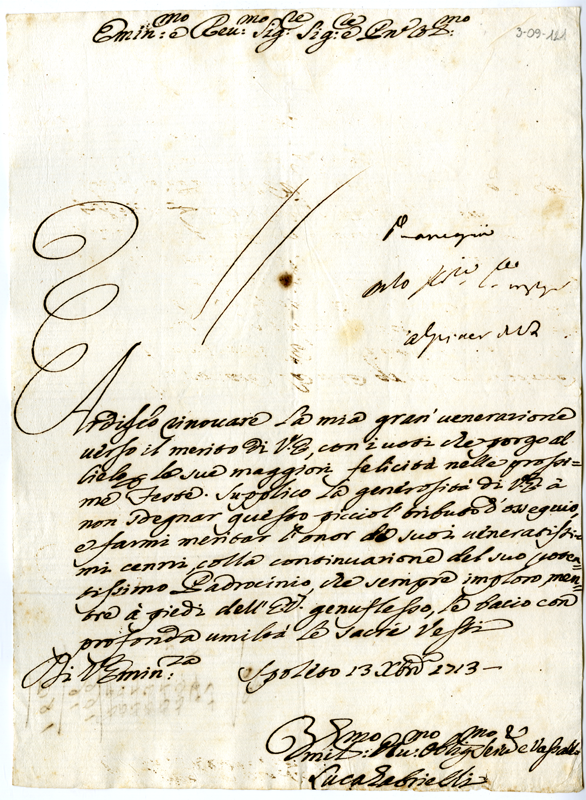 Emin:mo e Reu:mo Sig:re Sig:re e Pne Col:mo
3-09-121
Ardisco rinouare la mia gran' uenerazione
uerso il merito di V.E., con i uoti che porgo al
Cielo p le sue maggiori felicità nelle prossi-
me feste. Supplico la generosità di V.E. à
non sdegnar questo picciol' tributo d'ossequio,
e farmi meritar l'onor de suoi ueneratissi-
mi cenni, colla continuazione del suo poten=
tissimo Padrocinio, che sempre imploro, men=
tre à piedi dell' E.V. genuflesso, le bacio con
profonda umiltà le sacre Vesti
Di V. Emin:za Spoleto 13 Xbre 1713 -
Vmil:mo Deu:mo Oblig:mo Serue e Vassallo
Luca Gabrielli